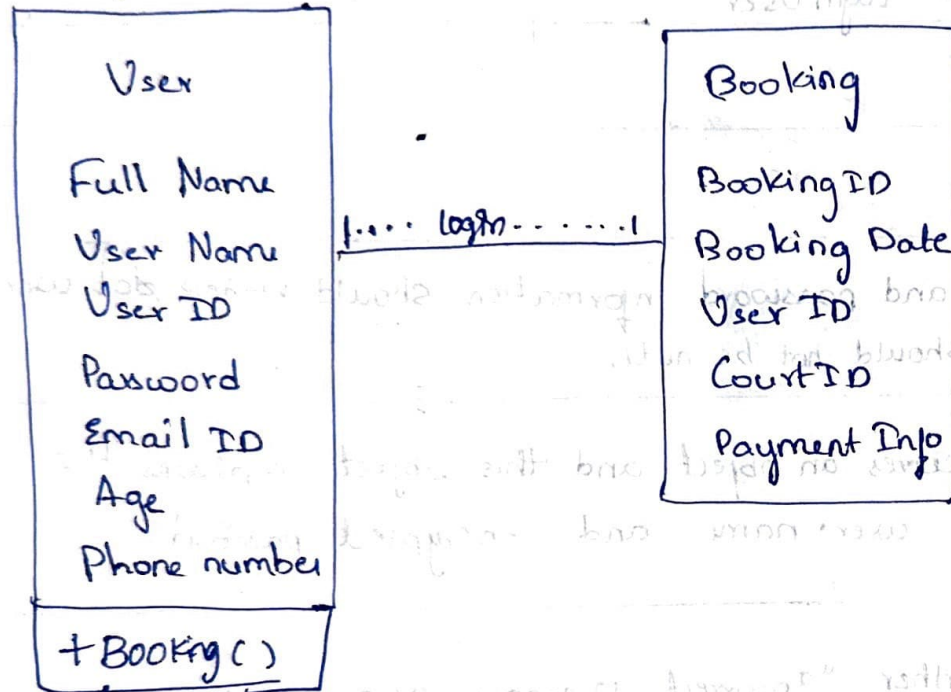 User
Full Name
User Name
User ID
Password
Email ID
Age
Phone number
+Booking()
1.... login.......1
Booking
Booking ID
Booking Date
User ID
Court ID
Payment Info